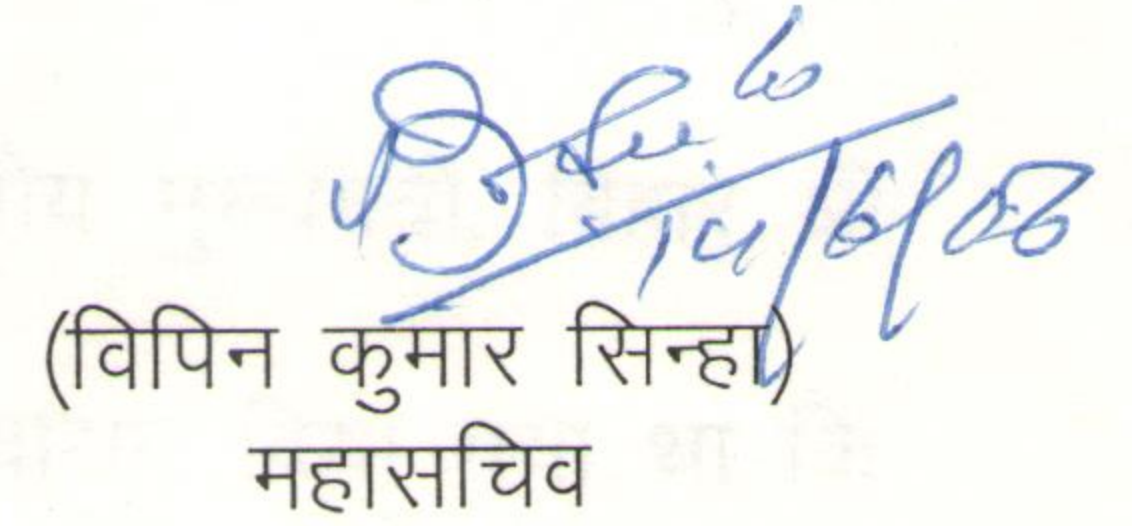 14/6/06
(विपिन कुमार सिन्हा)
महासचिव